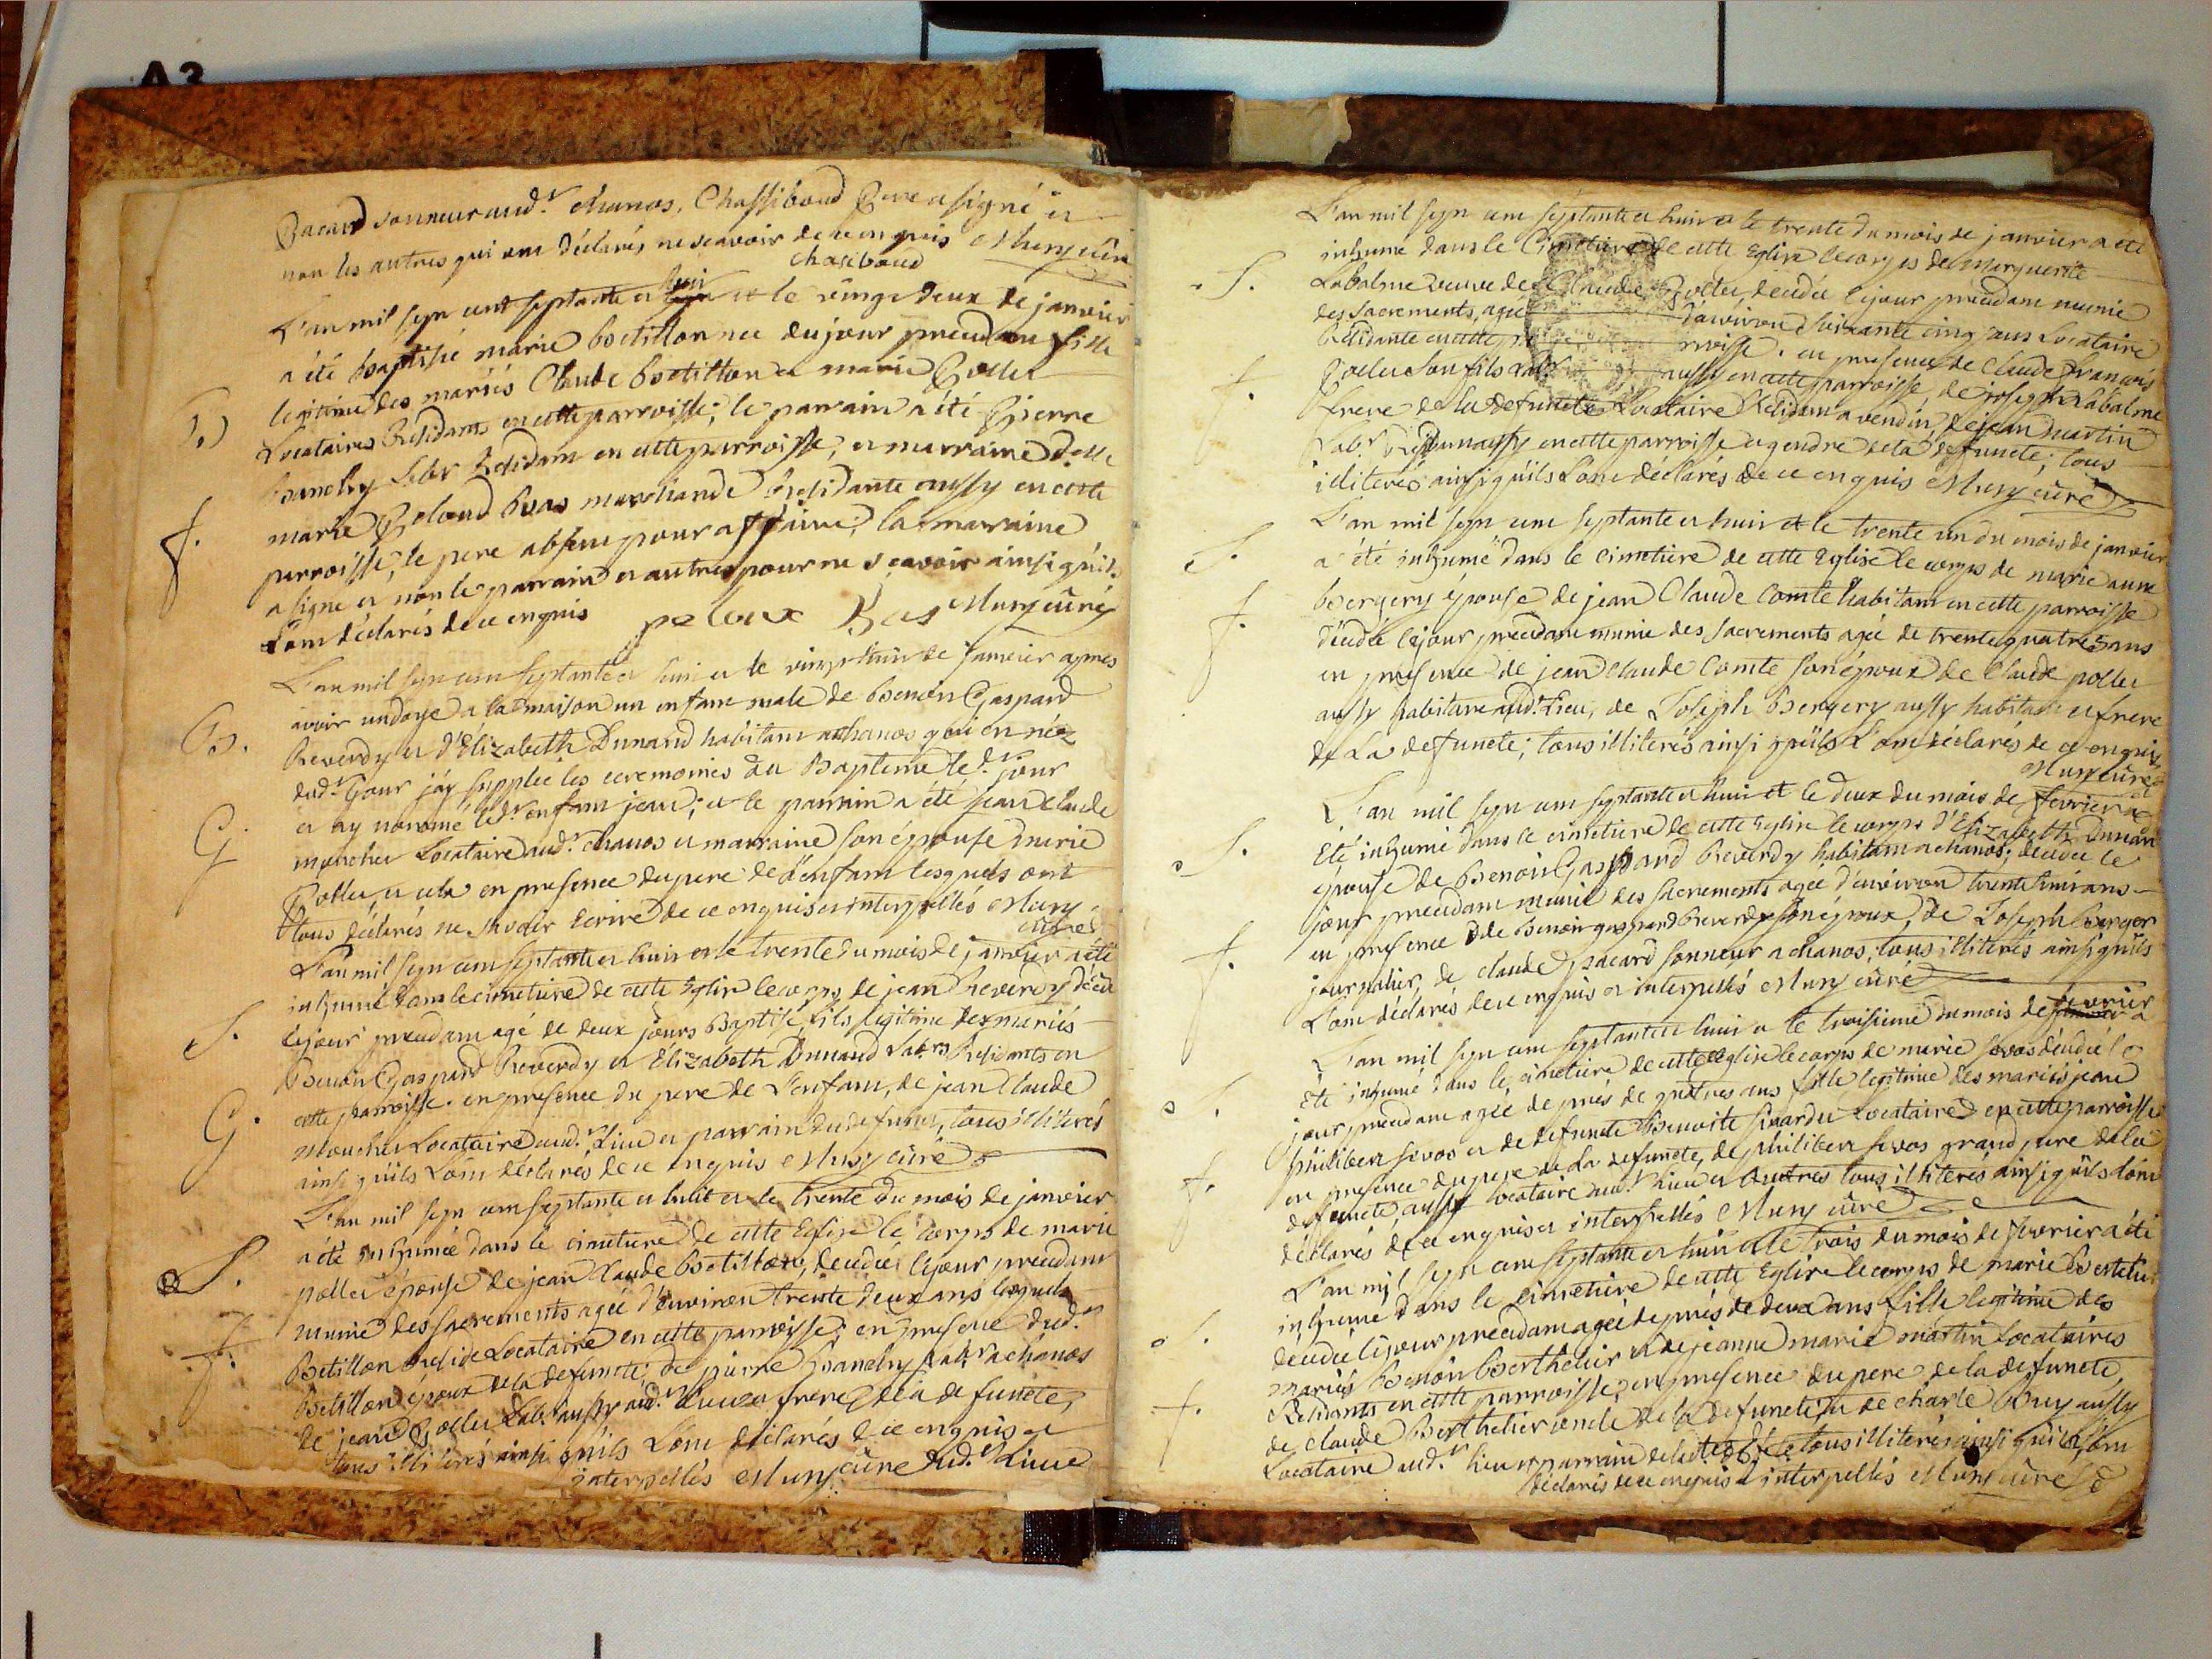 A3
Pacard sonneur aud.t chanos, Chassiboud Pere a signé et
non les autres qui ont déclarés ne scavoir de ce enquis Muny curé
chasiboud
L'an mil sept cent septante et huit et le vingt deux de janvier
a été baptisé marie Botillon née du jour precedant fille
legitime des mariés Claude Botillon et marie Pollet
B.
Locataires Residants en cette parroisse; le parrain a été Pierre
Labr Residant en cette parroisse, et marraine d.elle
marie Peloud Bras marchande Residante aussy en cette
f.
parroisse, le pere absent pour affaire; la marraine
a signe et non le parrain et autres pour ne scavoir ainsi qu'ils
l'ont déclarés de ce enquis peloux Bas Muny curé
L'an mil sept cent septante et huit et le vingt huit de janvier apres
avoir undoye a la maison un enfant male de Benoit Gaspard
B.
Reverdy et d'Elizabeth Dunand habitant a chanos qui en néz
dud.t jour j'ay supplée les ceremonies du Bapteme led.t jour
et ay nommé led.t enfant jean; et le parrain a été jean claude
G
moucher Locataire aud.t chanos et marraine son épouse marie
Pollet, et cela en presence du pere de l'enfant lesquels ont
tous déclarés ne savoir ecrire de ce enquis et interpellés Muny
curé
L'an mil sept cent septante et huit et le trente du mois de janvier a été
inhumé dans le cimetiere de cette Eglise le corps de jean Reverdy décédé
S.
le jour precedant agé de deux jours Baptisé, fils legitime des mariés
Benoit Gaspard Reverdy et Elizabeth Dunand Lab.rs Residants en
cette parroisse. en presence du pere de l'enfant, de jean Claude
G.
moucher Locataire aud.t Lieu et parrain du defunct, tous illiterés
ainsi qu'ils L'ont déclarés de ce enquis Muny curé
L'an mil sept cent septante et huit et le trente du mois de janvier
a été inhumée dans le cimetiere de cette Eglise le corps de marie
S.
pollet épouse de jean Claude Botillon, decedée le jour precedant
munie des sacrements agée d'environ trente deux ans lequel
Botillon reside Locataire en cette parroisse; en presence dud.t
f.
Botillon époux de la defuncte; de pierre Lab.r a chanos
de jean Pollet Lab.r aussy aud.t Lieu et frere de la defuncte,
tous illiterés ainsi qu'ils L'ont déclarés de ce enquis et
interpellés Muny curé dud.t Lieu
L'an mil sept cent septante et huit et le trente du mois de janvier a été
inhume dans le Cimetiere de cette Eglise le corps de Marguerite
S.
Labalme veuve de Claude Pollet, decedée le jour precedant munie
des sacrements, agée d'environ soixante cinq ans Locataire
Residante en cette parroisse. en presence de Claude François
f.
Pollet son fils Lab.r aussy en cette parroisse, de joseph Labalme
frere de la defuncte Locataire Residant a vendin, de jean martin
Lab.r Residant aussy en cette parroisse et gendre de la defuncte; tous
illiterés ainsi qu'ils L'ont déclarés de ce enquis Muny curé
L'an mil sept cent septante et huit et le trente un du mois de janvier
S.
a été inhumé dans le cimetiere de cette Eglise le corps de marie anne
Bergery épouse de jean Claude Comte habitant en cette parroisse
f.
décédée le jour precedant munie des sacrements agée de trente quatre ans
en presence de jean claude Comte son époux de Claude pollet
aussy habitant aud.t Lieu, de Joseph Bergery aussy habitant et frere
de La defuncte; tous illiterés ainsi qu'ils L'ont déclarés de ce enquis
Muny curé
L'an mil sept cent septante et huit et le deux du mois de fevrier a
S.
Eté inhumé dans le cimetiere de cette Eglise le corps d'Elizabeth Dunan
épouse de Benoit Gaspard Reverdy habitant a chanos; décédée le
jour precedant munie des sacrements agée d'environ trente huit ans
f.
en presence de Benoit gaspard Reverdy son époux, de Joseph Berger
journalier, de claude pacard sonneur a chanos, tous illiterés ainsi qu'ils
L'ont déclarés de ce enquis et interpellés Muny curé
L'an mil sept cent septante et huit et le troisieme du mois de fevrier a
S.
Eté inhumé dans le cimetiere de cette Eglise le corps de marie décédée le
jour precedant agée de près de quatres ans fille legitime des mariés jean
philibert et de defuncte Benoite Locataire en cette parroisse
f.
en presence du pere de la defuncte, de philibert grand pere de la
defuncte, aussy Locataire aud.t Lieu et autres tous illiterés ainsi qu'ils l'ont
déclarés de ce enquis et interpellés Muny curé
L'an mil sept cent septante et huit et le trois du mois de fevrier a été
inhume dans le cimetiere de cette Eglise le corps de marie
S.
decedée le jour precedant agée de près de deux ans fille legitime des
mariés Benoit Berthelier et de jeanne marie martin Locataires
Residants en cette parroisse, en presence du pere de la defuncte,
f.
de Claude Berthelier oncle de la defuncte et de charle Bruy aussy
Locataire aud.t Lieu et parrain de la tous illiterés ainsi qu'ils l'ont
déclarés de ce enquis et interpellés Muny curé